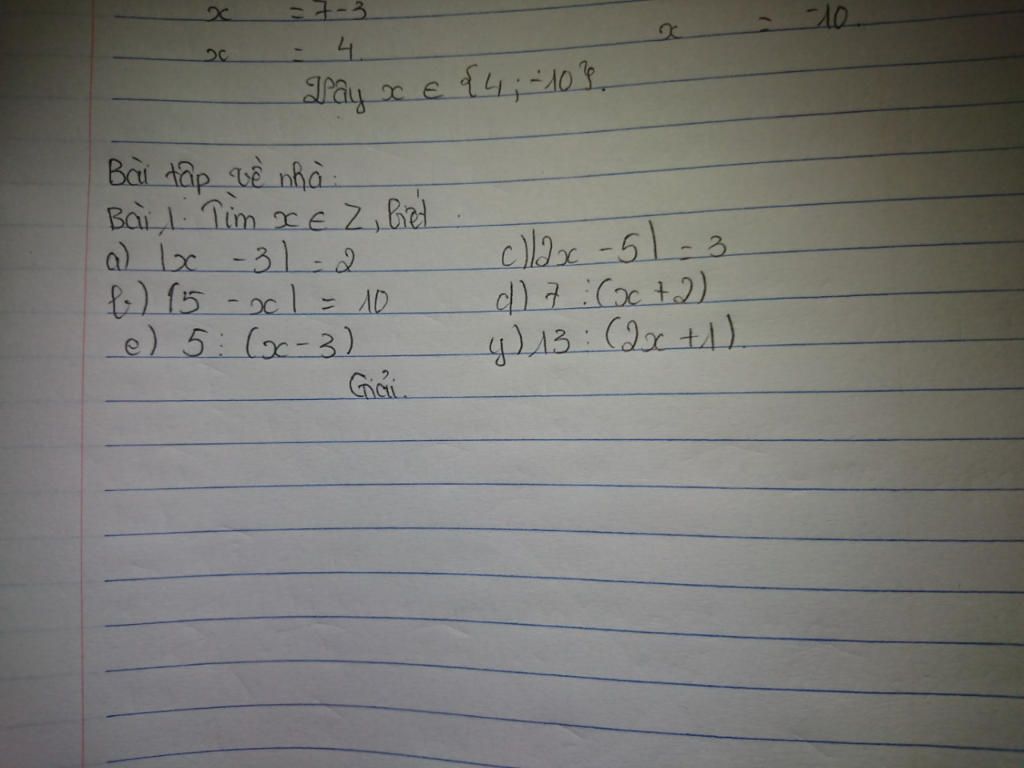 x = 7-3
x = -10
x = 4
Vậy x ∈ {4; -10}.
Bài tập về nhà:
Bài 1: Tìm x ∈ Z, biết
a) |x - 3| = 2 c) |2x - 5| = 3
b) |5 - x| = 10 d) 7 ⋮ (x+2)
e) 5 ⋮ (x-3) y) 13 ⋮ (2x+1).
Giải.